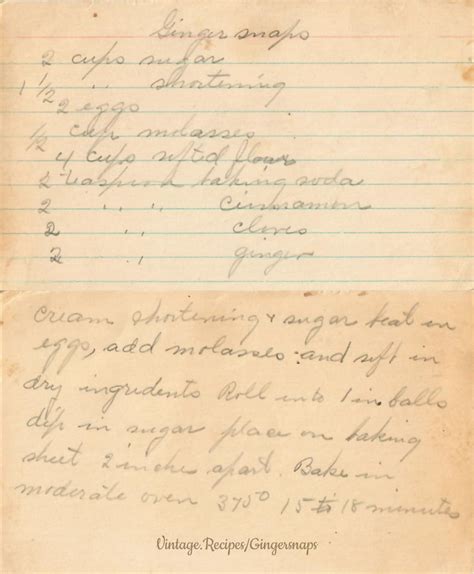 Ginger snaps
2 cups sugar
1 1/2 " " shortening
2 eggs
1/2 cup molasses
4 cups siftd flour
2 teaspoon baking soda
2 " " cinnamon
2 " cloves
2 " ginger
cream shortening & sugar beat in
eggs, add molasses and sift in
dry ingredents Roll into 1 in balls
dip in sugar place on baking
sheet 2 inche apart. Bake in
moderate oven 375° 15 to 18 minutes
Vintage.Recipes/Gingersnaps